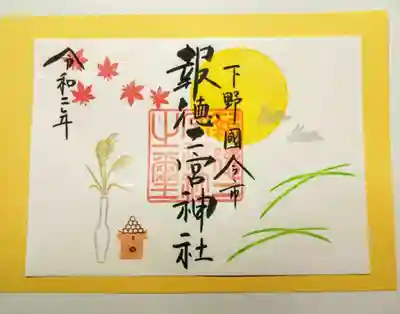 下野國今市
報徳二宮神社
令和二年